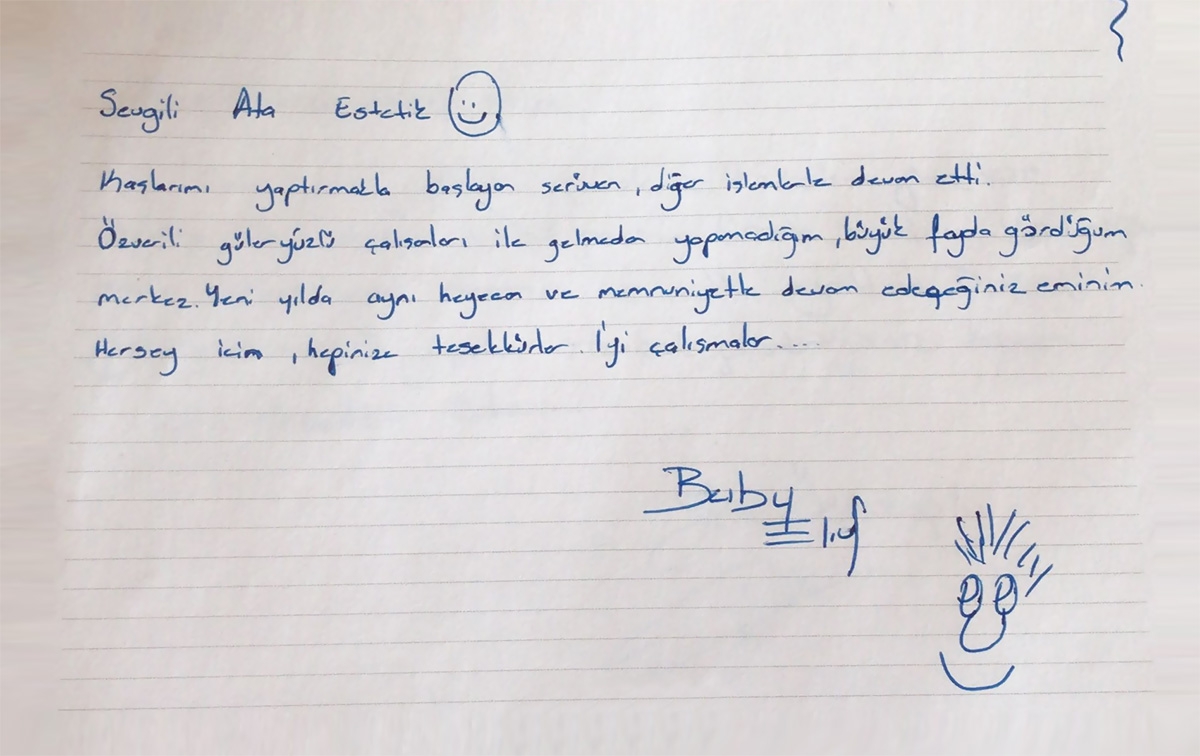 Sevgili Ata Estetik
Kaşlarımı yaptırmakla başlayan serüven, diğer işlemlerle devam etti.
Özverili güleryüzlü çalışanları ile gelmeden yapamadığım, büyük fayda gördüğüm
merkez. Yeni yılda aynı heyecan ve memnuniyetle devam edeceğiniz eminim.
Herşey için, hepinize teşekkürler. İyi çalışmalar....
Elif